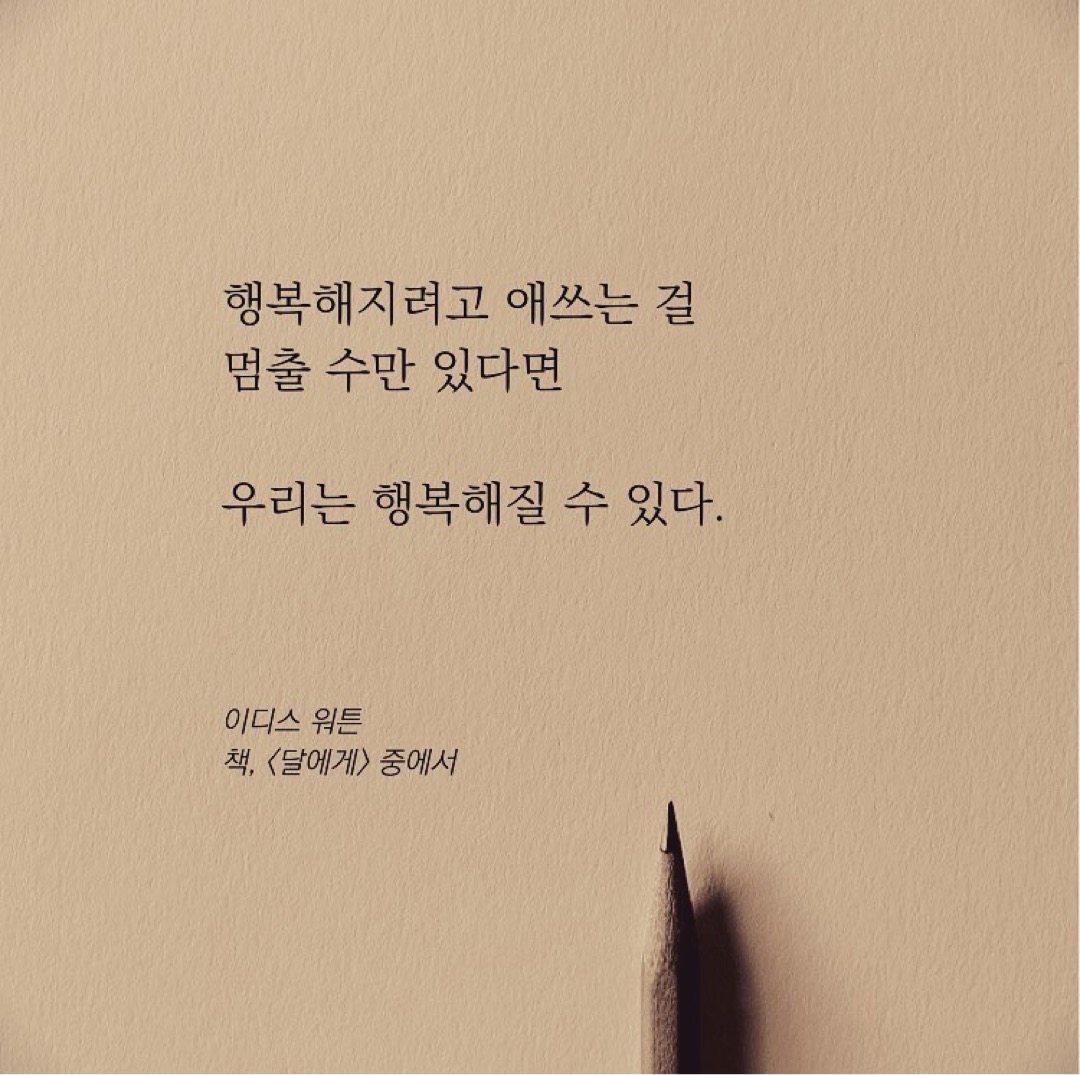 행복해지려고 애쓰는 걸
멈출 수만 있다면
우리는 행복해질 수 있다.
이디스 워튼
책, 〈달에게〉 중에서